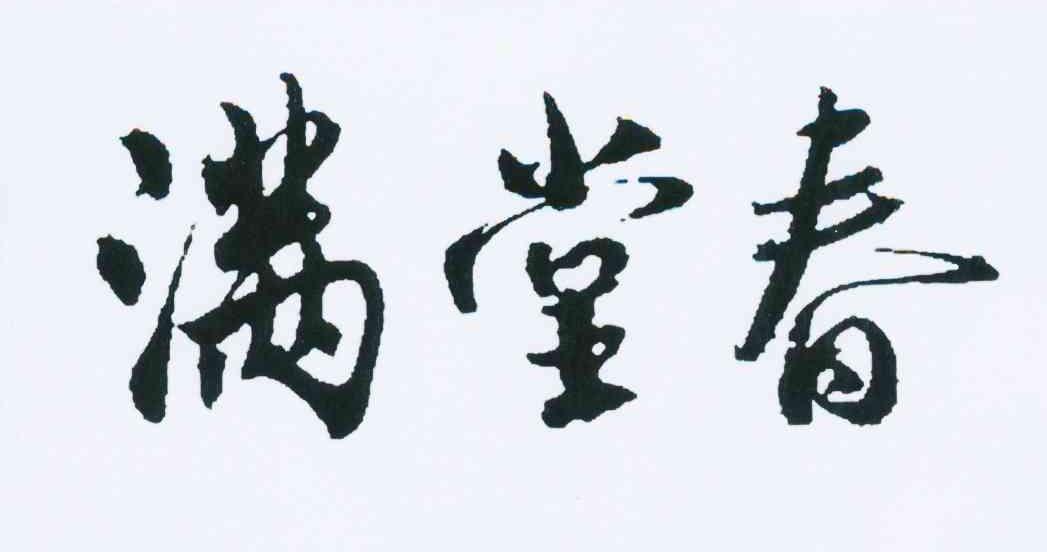 满堂春